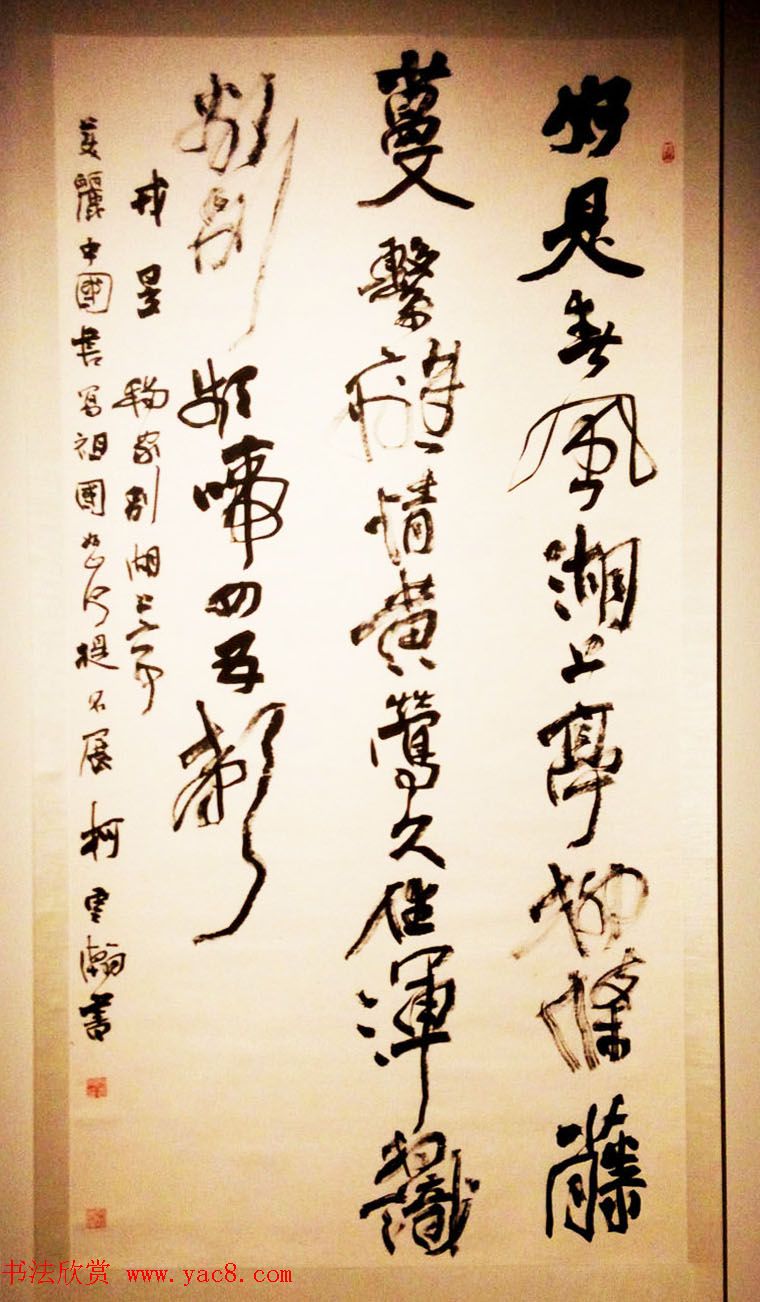 好是春風湖上亭柳條藤
蔓繫離情黃鶯久住渾相識
欲別頻啼四五聲
戎昱 移家別湖上亭
美麗中國書寫祖國山河提名展 柯雲瀚書
书法欣赏 www.yac8.com